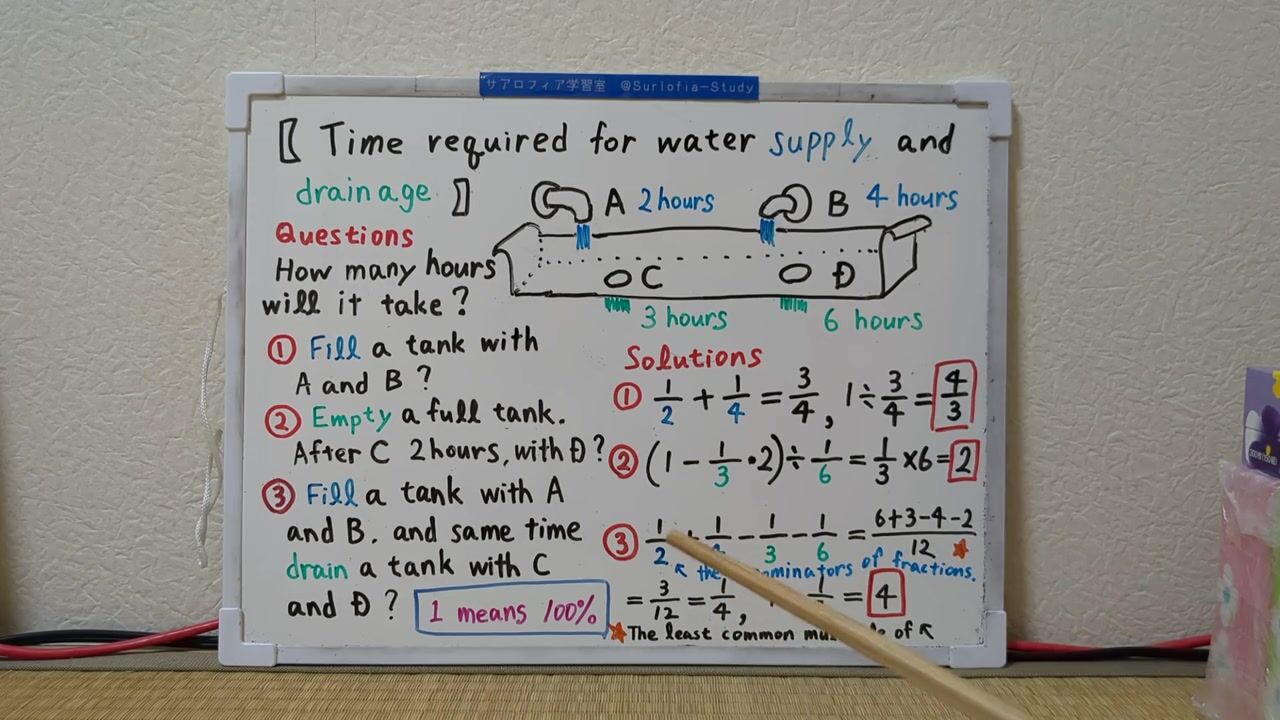 サアロフィア学習室 @Surlofia-Study
〖 Time required for water supply and
drainage 〗
A 2 hours
B 4 hours
C
D
3 hours
6 hours
Questions
How many hours
will it take?
① Fill a tank with
A and B?
② Empty a full tank.
After C 2 hours, with D?
③ Fill a tank with A
and B, and same time
drain a tank with C
and D?
1 means 100%
Solutions
① 1/2 + 1/4 = 3/4, 1 ÷ 3/4 = 4/3
② (1 - 1/3 • 2) ÷ 1/6 = 1/3 × 6 = 2
③ 1/2 + 1/ - 1/3 - 1/6 = 6+3-4-2/12 ★
↖ the minators of fractions.
= 3/12 = 1/4, = 4
★ The least common of ↖